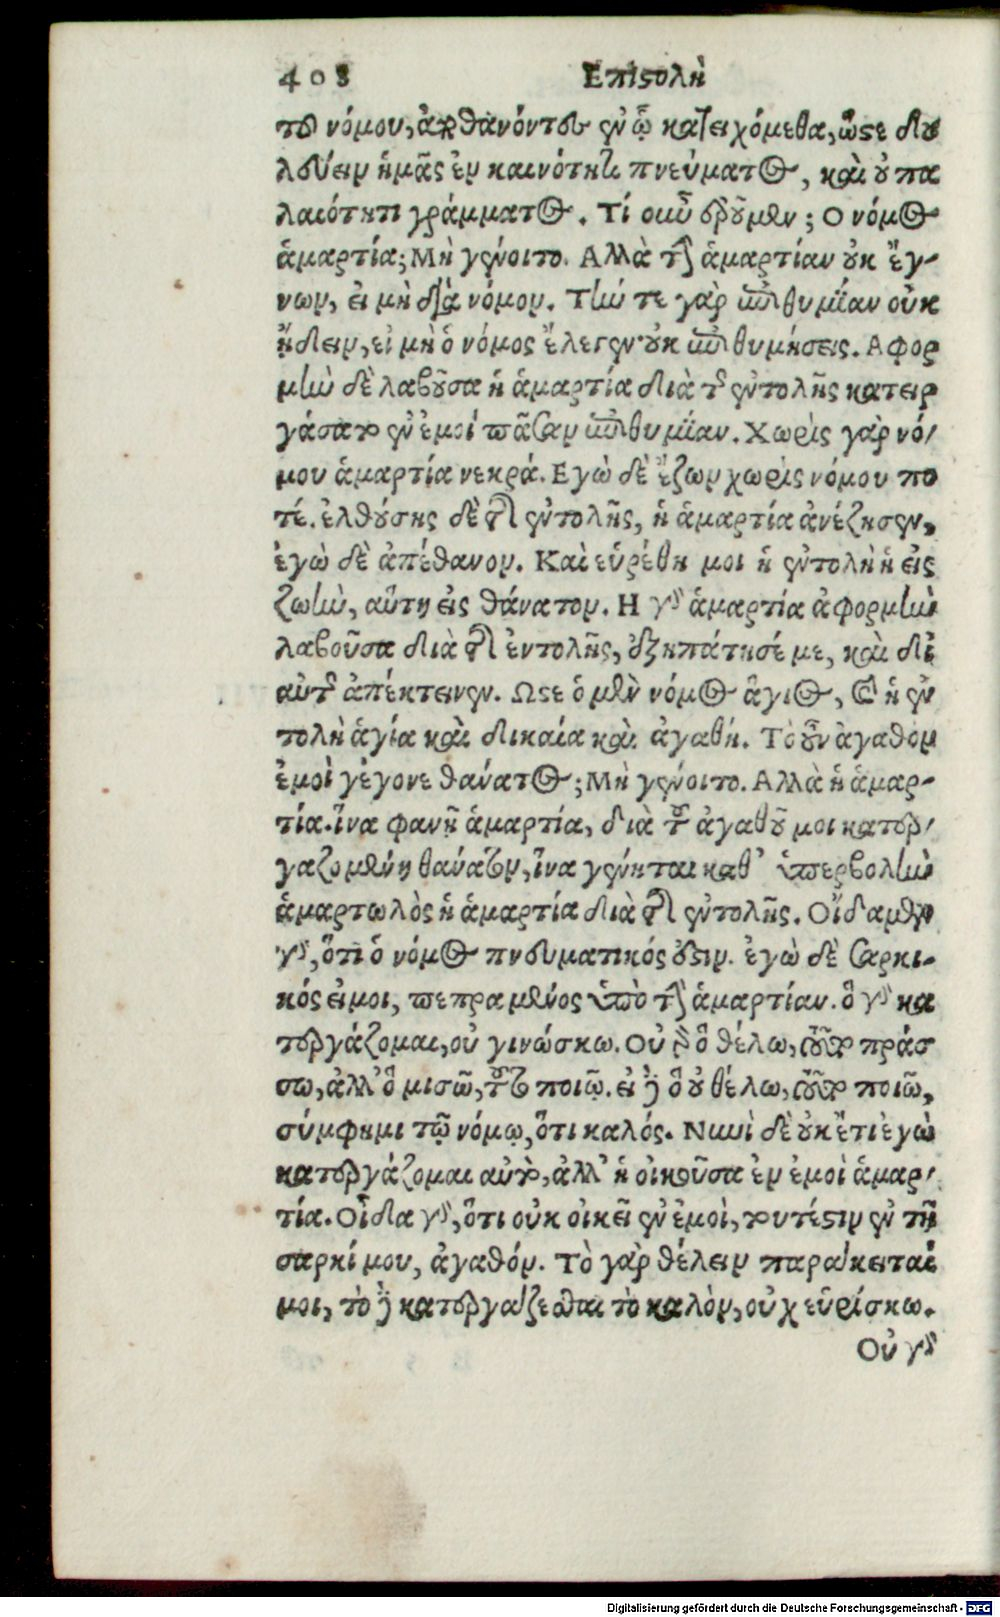 408 Επιστολὴ
του νόμου, ἀποθανόντες ἐν ᾧ κατειχόμεθα, ὥστε δου
λεύειν ἡμᾶς ἐν καινότητι πνεύματος, καὶ οὐ πα
λαιότητι γράμματος. Τί οὖν ἐροῦμεν; Ο νόμος
ἁμαρτία; Μὴ γένοιτο. Αλλὰ τὴν ἁμαρτίαν οὐκ ἔγ-
νων, εἰ μὴ διὰ νόμον. Τήν τε γὰρ ἐπιθυμίαν οὐκ
ᾔδειν, εἰ μὴ ὁ νόμος ἔλεγεν· οὐκ ἐπιθυμήσεις. Αφορ
μὴν δὲ λαβοῦσα ἡ ἁμαρτία διὰ τῆς ἐντολῆς κατειρ
γάσατο ἐν ἐμοί πᾶσαν ἐπιθυμίαν. Χωρὶς γὰρ νό-
μου ἁμαρτία νεκρά. Εγὼ δὲ ἔζων χωρὶς νόμου πο
τέ. ἐλθούσης δὲ τῆς ἐντολῆς, ἡ ἁμαρτία ἀνέζησεν,
ἐγὼ δὲ ἀπέθανον. Καὶ εὑρέθη μοι ἡ ἐντολὴ ἡ εἰς
ζωὴν, αὕτη εἰς θάνατον. Η γὰρ ἁμαρτία ἀφορμὴν
λαβοῦσα διὰ τῆς ἐντολῆς, ἐξηπάτησέ με, καὶ δι
αὐτῆς ἀπέκτεινεν. Ωστε ὁ μὲν νόμος ἅγιος, καὶ ἡ ἐν
τολὴ ἁγία καὶ δικαία καὶ ἀγαθή. Τὸ οὖν ἀγαθὸν
ἐμοὶ γέγονε θάνατος; Μὴ γένοιτο. Αλλὰ ἡ ἁμαρ-
τία. ἵνα φανῇ ἁμαρτία, διὰ τοῦ ἀγαθοῦ μοι κατερ-
γαζομένη θάνατον, ἵνα γένηται καθ' ὑπερβολὴν
ἁμαρτωλὸς ἡ ἁμαρτία διὰ τῆς ἐντολῆς. Οἴδαμεν
γὰρ, ὅτι ὁ νόμος πνευματικός ἐστιν. ἐγὼ δὲ σαρκι-
κός εἰμι, πεπραμένος ὑπὸ τὴν ἁμαρτίαν. ὃ γὰρ κα
τεργάζομαι, οὐ γινώσκω. Οὐ γὰρ ὃ θέλω, τοῦτο πράσ
σω, ἀλλ' ὃ μισῶ, τοῦτο ποιῶ. εἰ δὲ ὃ οὐ θέλω, τοῦτο ποιῶ,
σύμφημι τῷ νόμῳ, ὅτι καλός. Νυνὶ δὲ οὐκ ἔτι ἐγὼ
κατεργάζομαι αὐτὸ, ἀλλ' ἡ οἰκοῦσα ἐν ἐμοὶ ἁμαρ-
τία. Οἶδα γὰρ, ὅτι οὐκ οἰκεῖ ἐν ἐμοὶ, τουτέστιν ἐν τῇ
σαρκί μου, ἀγαθόν. Τὸ γὰρ θέλειν παράκειταί
μοι, τὸ δὲ κατεργάζεσθαι τὸ καλὸν, οὐχ εὑρίσκω.
Οὐ γὰρ
Digitalisierung gefördert durch die Deutsche Forschungsgemeinschaft - DFG